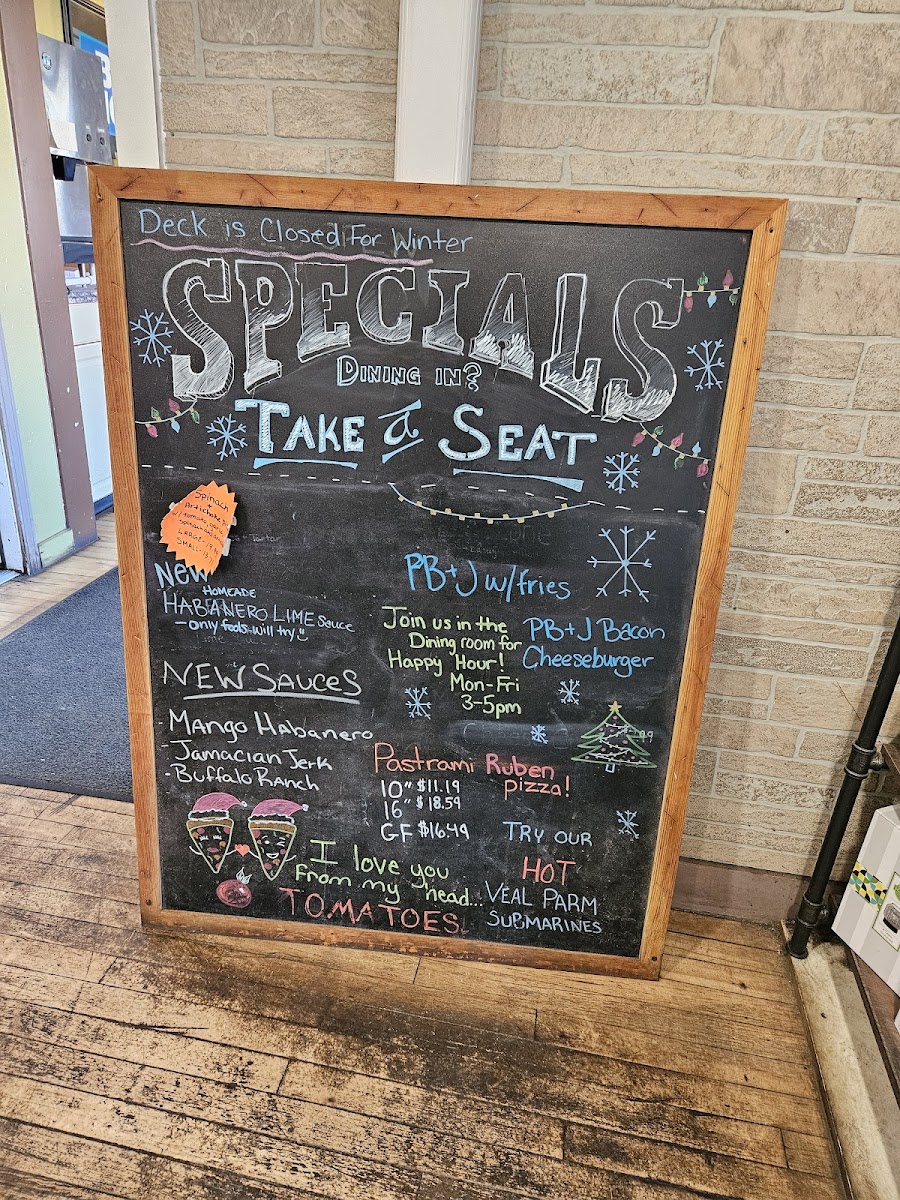 Deck is Closed For Winter
SPECIALS
DINING IN?
TAKE a SEAT
Spinach
+
Artichoke
LARGE
SMALL
New
HOMEADE
HABANERO LIME sauce
- only fools will try
NEW SAUCES
- MANGO HABANERO
- JAMACIAN JERK
- BUFFALO RANCH
PB+J w/fries
Join us in the
Dining room for
Happy Hour!
Mon-Fri
3-5pm
PB+J Bacon
Cheeseburger
Pastrami Ruben
pizza!
10" $11.19
16" $18.59
GF $16.49
I love you
from my head...
TOMATOES
TRY OUR
HOT
VEAL PARM
SUBMARINES